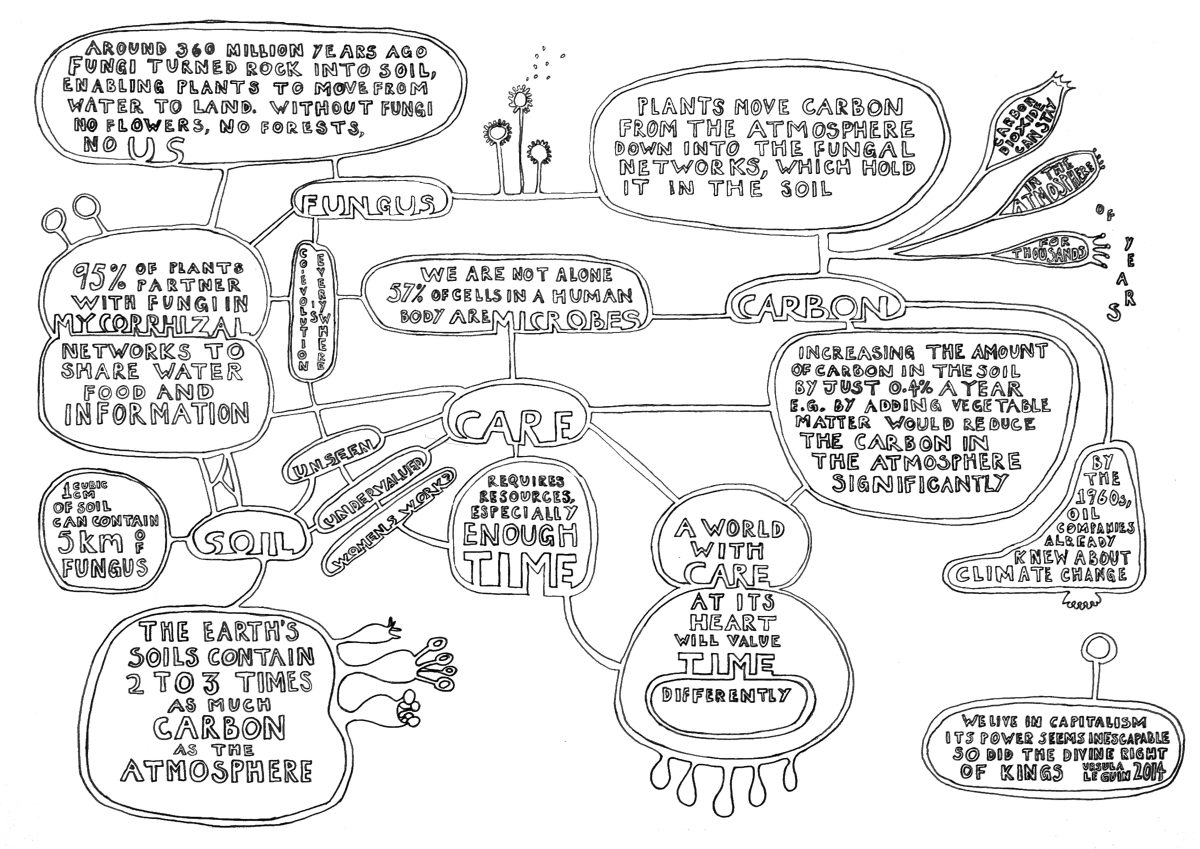 AROUND 360 MILLION YEARS AGO
FUNGI TURNED ROCK INTO SOIL,
ENABLING PLANTS TO MOVE FROM
WATER TO LAND. WITHOUT FUNGI
NO FLOWERS, NO FORESTS,
NO US
FUNGUS
PLANTS MOVE CARBON
FROM THE ATMOSPHERE
DOWN INTO THE FUNGAL
NETWORKS, WHICH HOLD
IT IN THE SOIL
CARBON
DIOXIDE
CAN STAY
IN THE
ATMOSPHERE
FOR
THOUSANDS
OF YEARS
95% OF PLANTS
PARTNER
WITH FUNGI IN
MYCORRHIZAL
NETWORKS TO
SHARE WATER
FOOD AND
INFORMATION
COEVOLUTION
IS
EVERYWHERE
WE ARE NOT ALONE
57% OF CELLS IN A HUMAN
BODY ARE MICROBES
CARBON
INCREASING THE AMOUNT
OF CARBON IN THE SOIL
BY JUST 0.4% A YEAR
E.G. BY ADDING VEGETABLE
MATTER WOULD REDUCE
THE CARBON IN
THE ATMOSPHERE
SIGNIFICANTLY
CARE
UNSEEN
UNDERVALUED
WOMEN'S WORK?
REQUIRES
RESOURCES,
ESPECIALLY
ENOUGH
TIME
1 CUBIC
CM
OF SOIL
CAN CONTAIN
5km OF
FUNGUS
SOIL
A WORLD
WITH
CARE
AT ITS
HEART
WILL VALUE
TIME
DIFFERENTLY
BY
THE
1960s,
OIL
COMPANIES
ALREADY
KNEW ABOUT
CLIMATE CHANGE
THE EARTH'S
SOILS CONTAIN
2 TO 3 TIMES
AS MUCH
CARBON
AS THE
ATMOSPHERE
WE LIVE IN CAPITALISM
ITS POWER SEEMS INESCAPABLE
SO DID THE DIVINE RIGHT
OF KINGS URSULA LE GUIN 2014